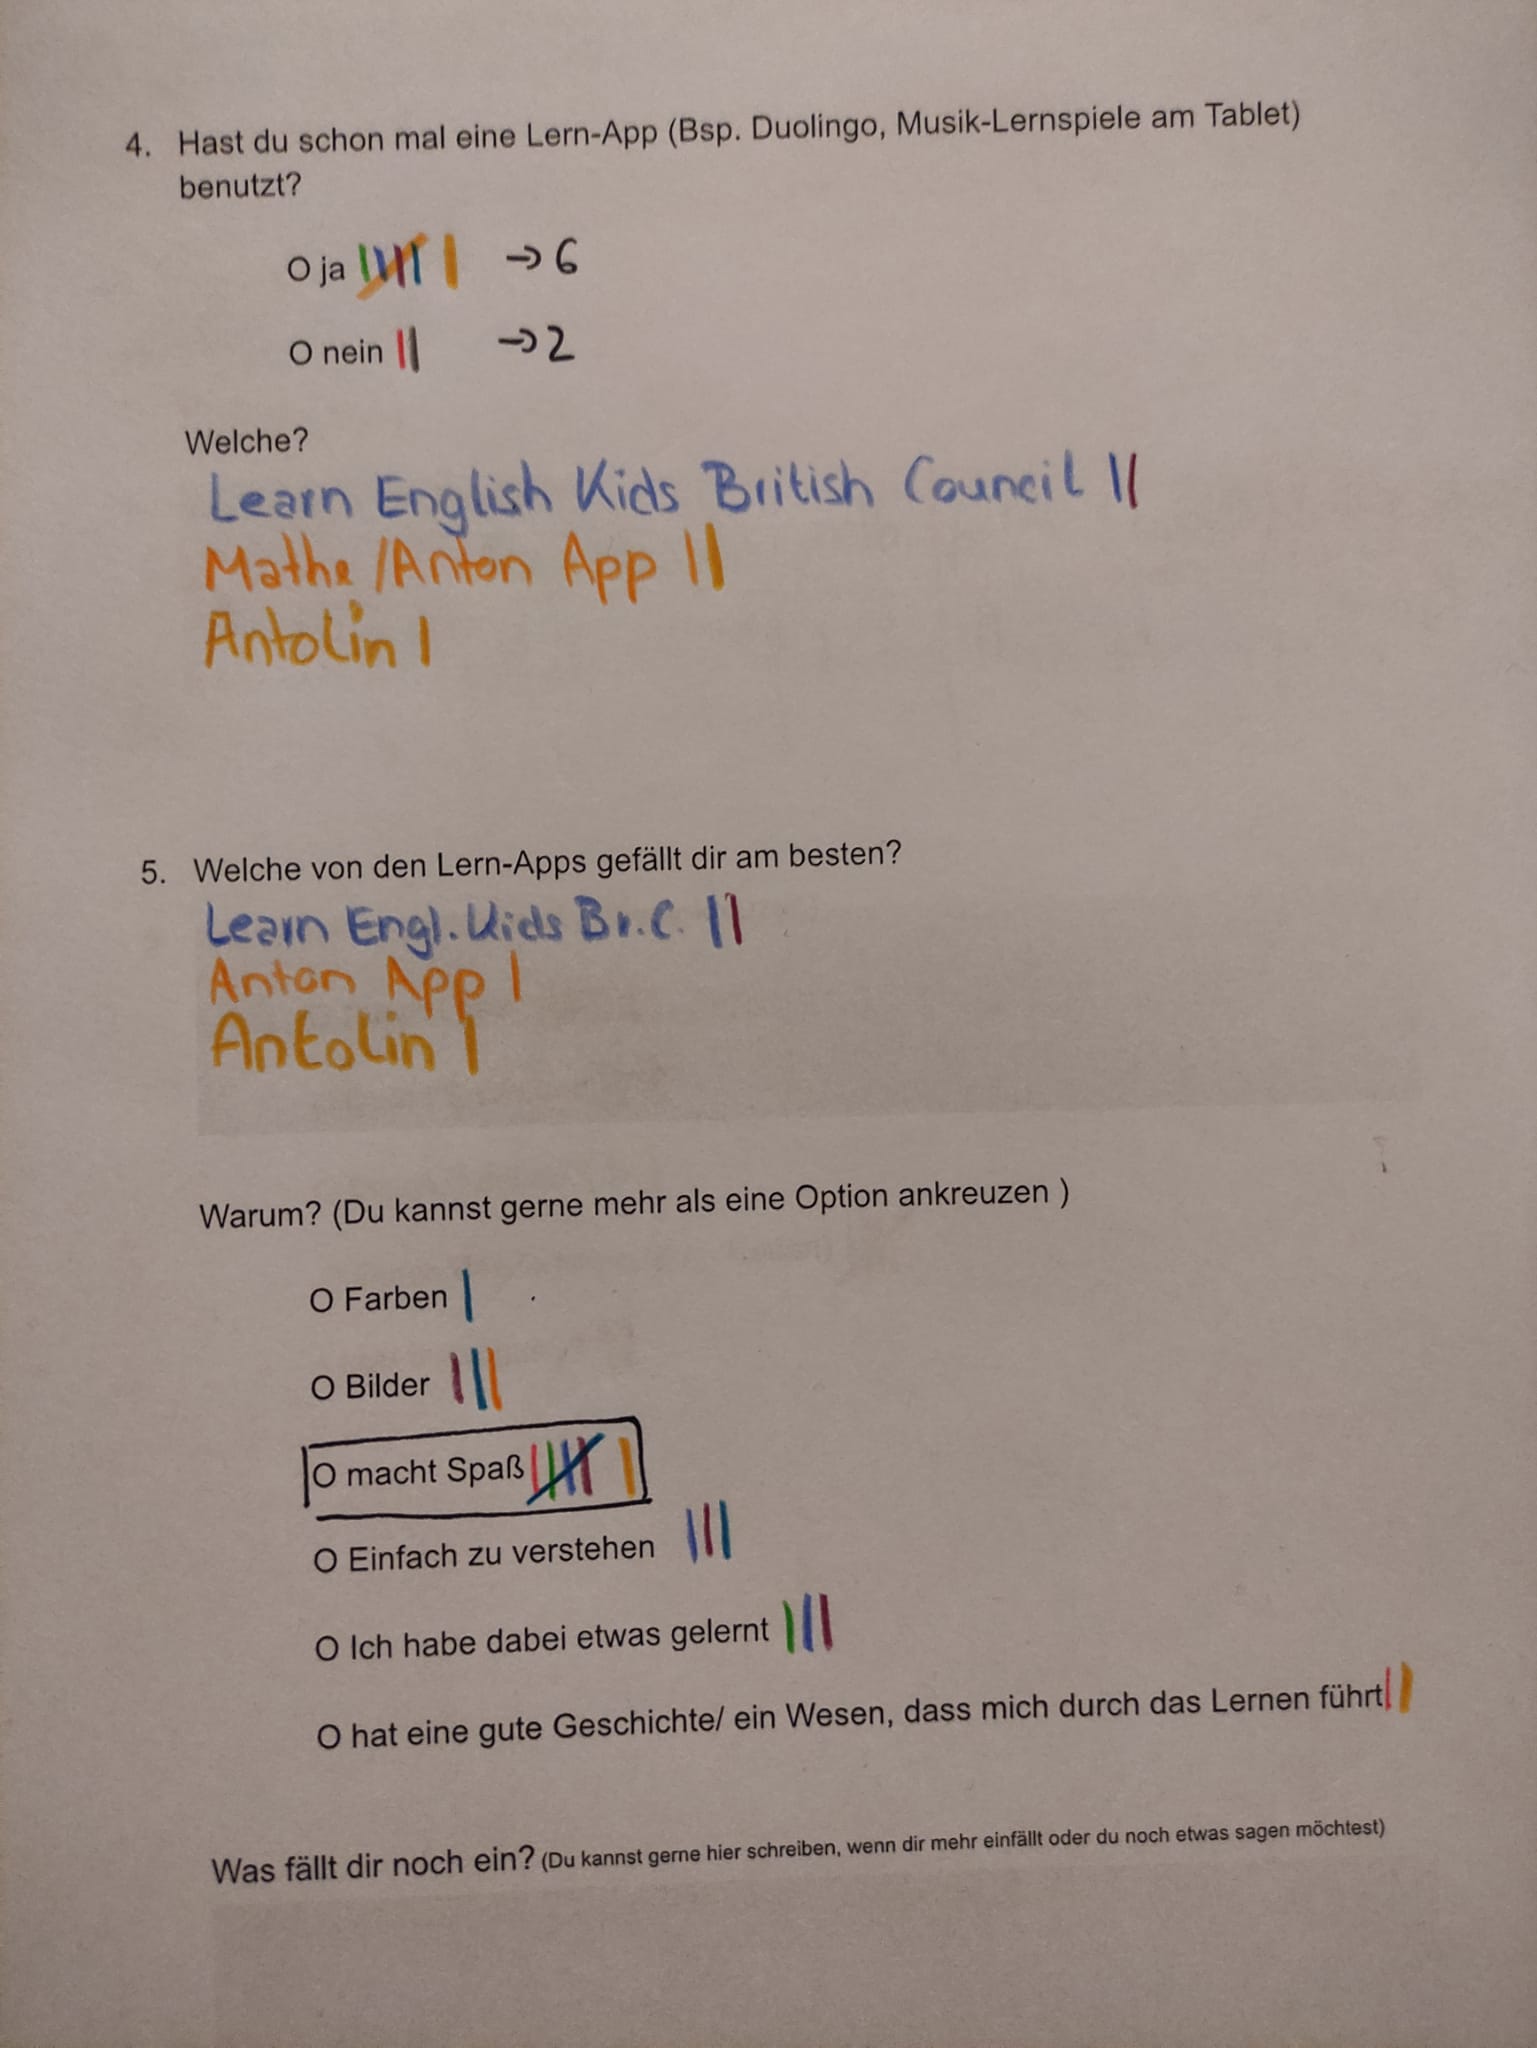 4. Hast du schon mal eine Lern-App (Bsp. Duolingo, Musik-Lernspiele am Tablet)
benutzt?
O ja 𝍸 | → 6
O nein || → 2
Welche?
Learn English Kids British Council ||
Mathe /Anton App ||
Antolin |
5. Welche von den Lern-Apps gefällt dir am besten?
Learn Engl. Kids Br.C. ||
Anton App |
Antolin |
Warum? (Du kannst gerne mehr als eine Option ankreuzen )
O Farben |
O Bilder |||
O macht Spaß 𝍸 |
O Einfach zu verstehen |||
O Ich habe dabei etwas gelernt |||
O hat eine gute Geschichte/ ein Wesen, dass mich durch das Lernen führt ||
Was fällt dir noch ein? (Du kannst gerne hier schreiben, wenn dir mehr einfällt oder du noch etwas sagen möchtest)